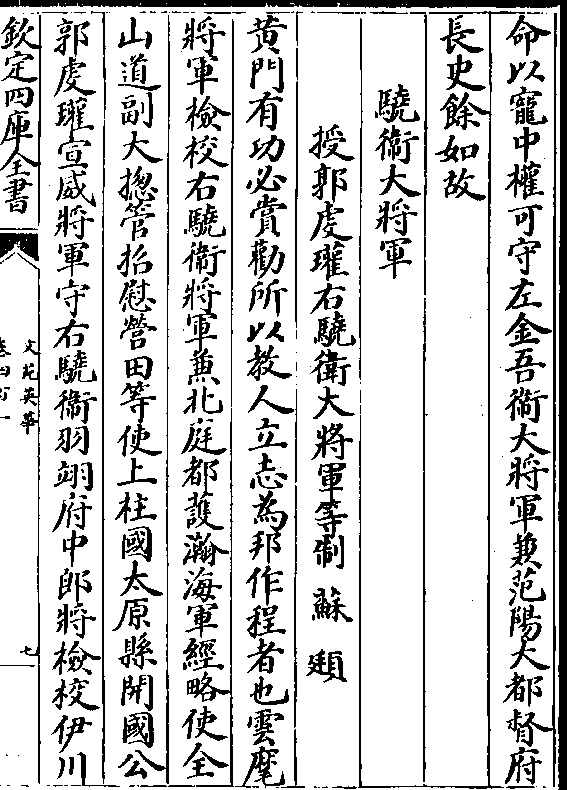 命以寵中權可守左金吾衞大將軍兼范陽大都督府
長史餘如故
驍衞大將軍
授郭虔瓘右驍衛大將軍等制 蘇頲
黄門有功必賞勸所以教人立志為邦作程者也雲麾
將軍檢校右驍衞將軍兼北庭都護瀚海軍經略使金
山道副大揔管招慰營田等使上柱國太原縣開國公
郭虔瓘宣威將軍守右驍衞羽翊府中郎將檢校伊川
欽定四庫全書
文苑英華
卷四百一
七